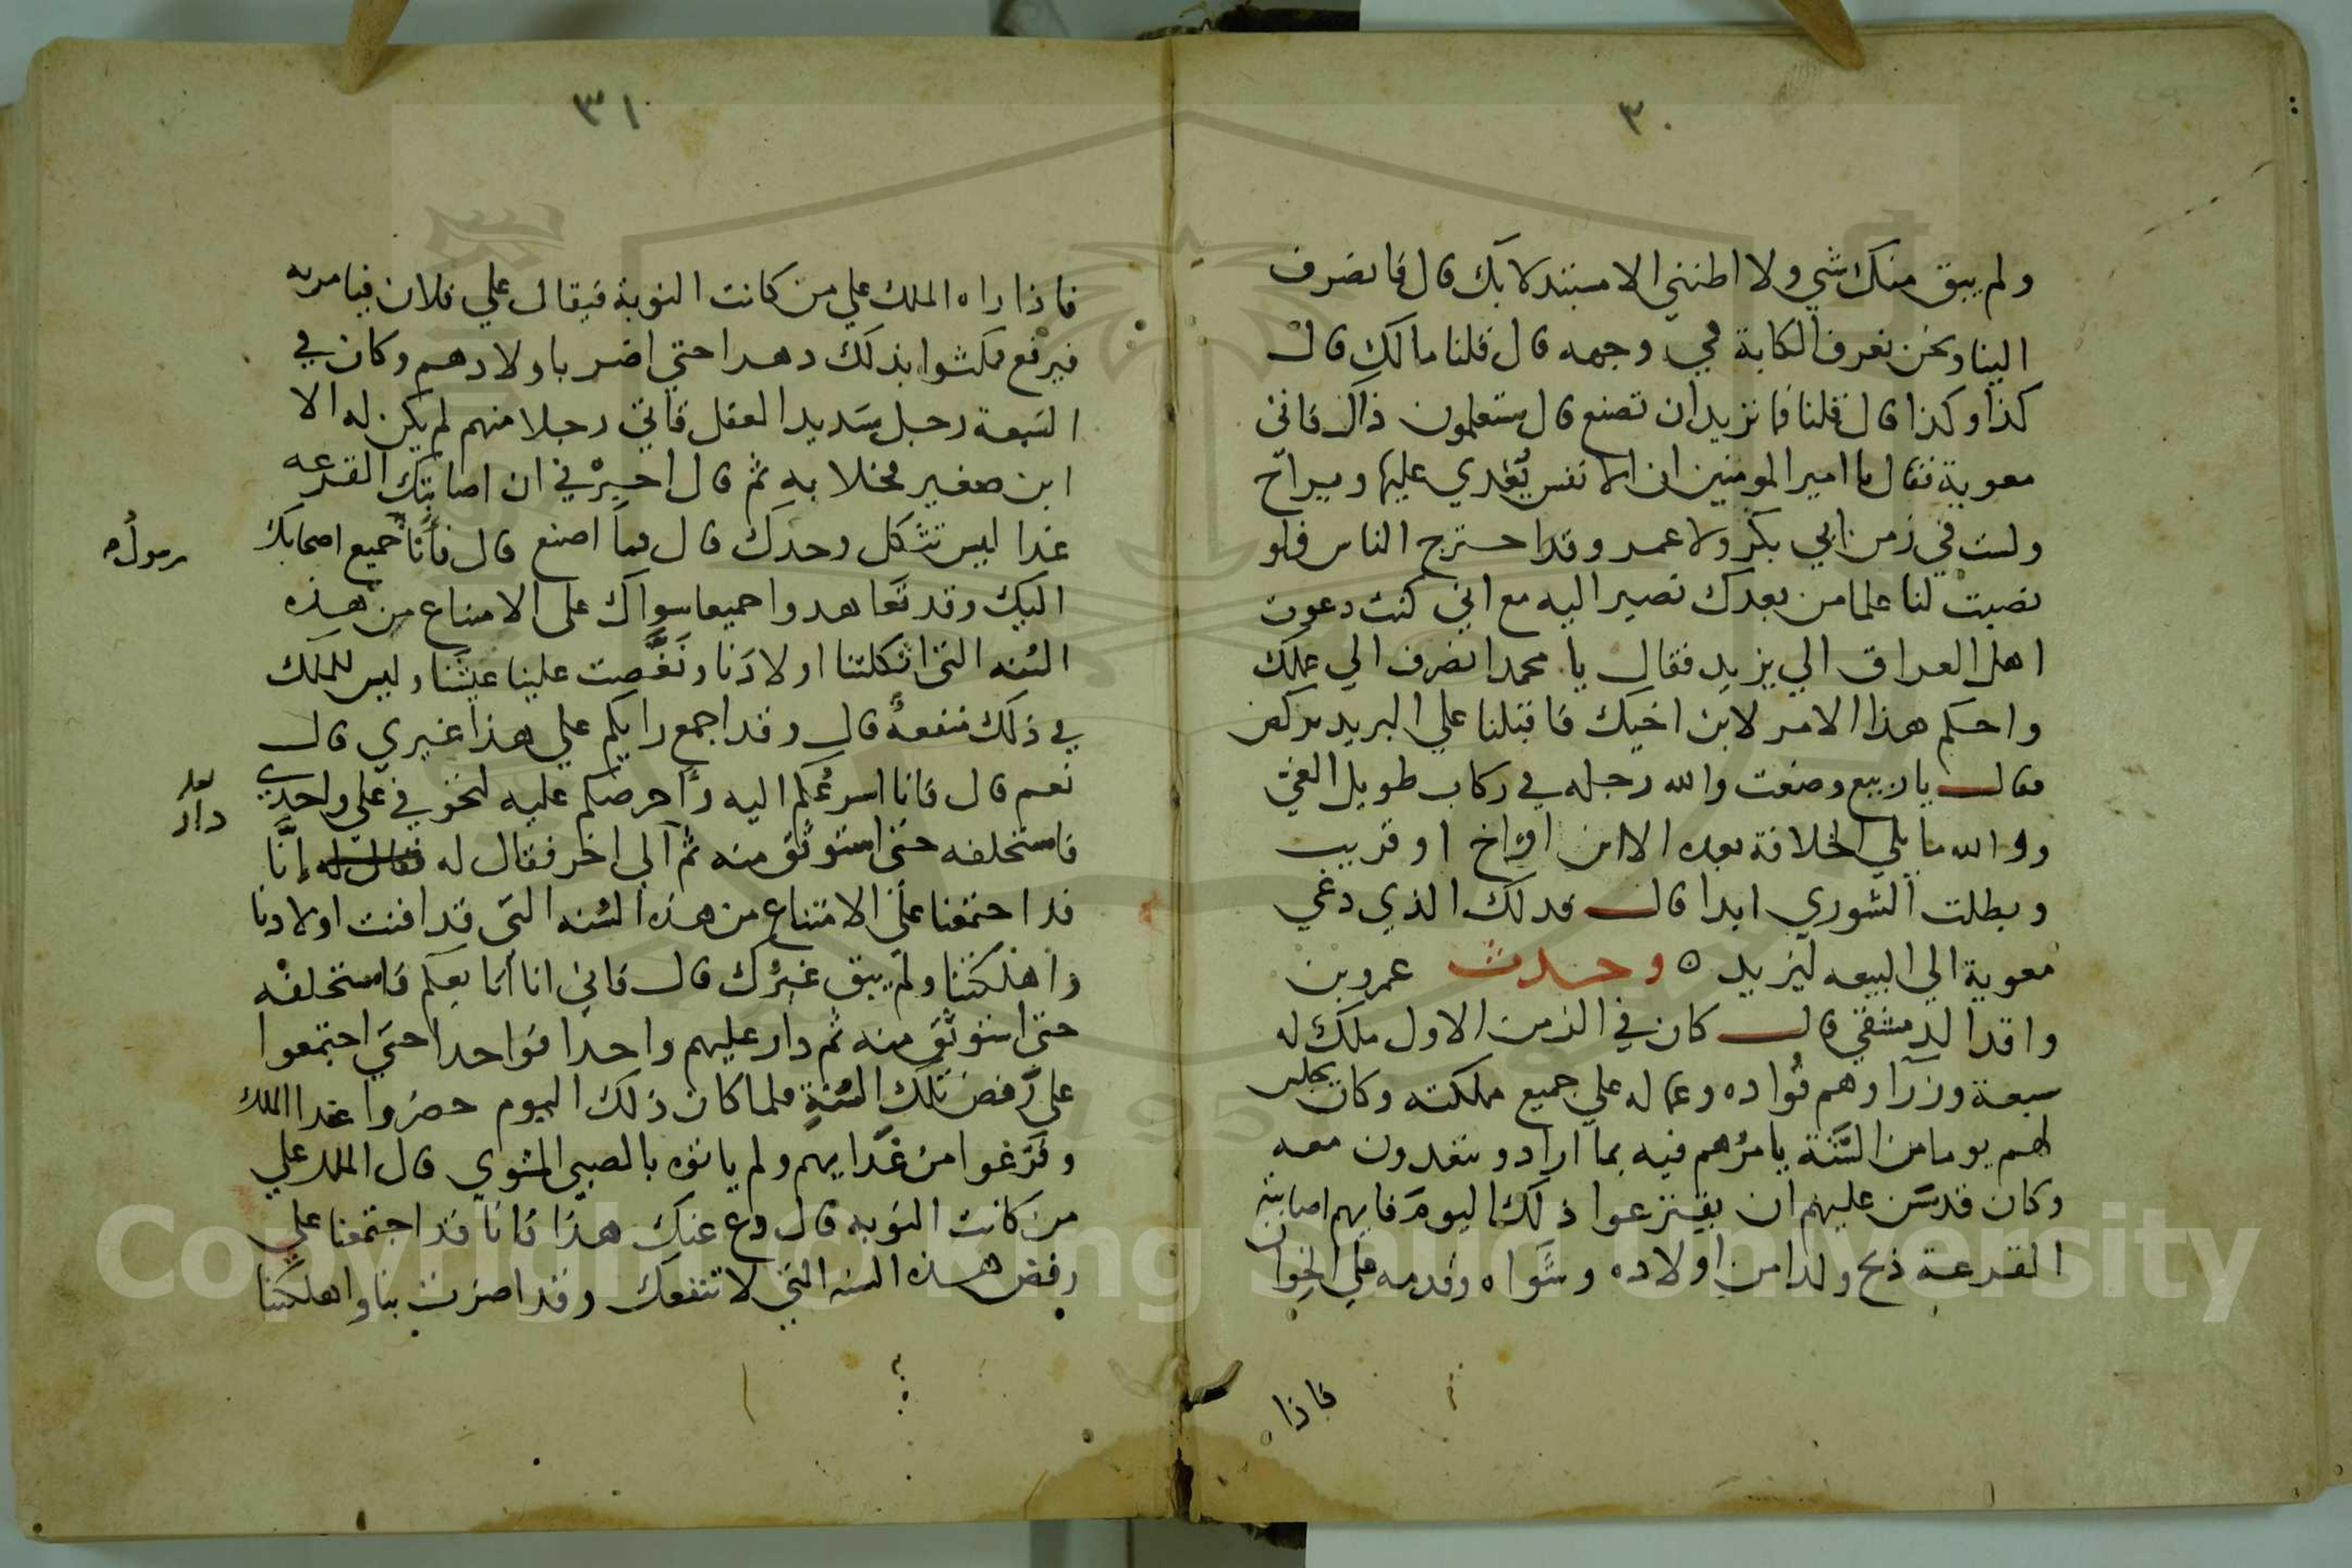 ٣٠
ولم يبق منك شي ولا اظنني الا مستبدلا بك قال فانصرف
الينا ونحن نعرف الكابة في وجهه قال قلنا مالك قال
كذا وكذا قال قلنا فما تريد ان تصنع قال ستعلمون ذاك فاتى
معوية فقال يا امير المومنين ان الانفس يُغدي عليها ويراح
ولست في زمن ابي بكر ولا عمر وقد احترج الناس فلو
نصبت لنا علما من بعدك نصير اليه مع اني كنت دعوت
اهل العراق الي يزيد فقال يا محمد انصرف الي عملك
واحكم هذا الامر لابن اخيك فاقبلنا علي البريد نركض
فقال يا ربيع وضعت والله رجله في ركاب طويل الغي
ووالله ما يلي الخلافة بعده الا ابن او اخ او قريب
وبطلت الشوري ابدا قال فذلك الذي دعي
معوية الي البيعه ليزيد ٥ وحدث عمرو بن
واقد الدمشقي قال كان في الزمن الاول ملك له
سبعة وزرآ وهم قُواده وعماله علي جميع مملكته وكان يجلس
لهم يوما من السَّنة يامرُهم فيه بما اراد ويتغدون معه
وكان قد سَن عليهم ان يقترعوا ذلك اليومَ فايهم اصابته
القرعة ذبح ولدا من اولاده وشَواه وقدمه علي الخوان
فاذا
٣١
فاذا راه الملك علي من كانت النوبة فيقال علي فلان فيامر به
فيرفع فمكثوا بذلك دهرا حتي اضر باولادهم وكان في
السَبعة رجل شديد العقل فاتي رجلا منهم لم يكن له الا
ابن صغير فخلا به ثم قال اخبرْني ان اصابتك القرعه
غدا اليس تثكل وحدك قال فما اصنع قال فأنا جميع اصحابك
رسولُ
اليك وقد تعاهدوا جميعا سواك على الامتناع من هذه
السُنه التي اثكلتنا اولادَنا ونَغَّصت علينا عيشَنا وليس للملك
في ذلك منفعةٌ قال وقد اجمع رايكم علي هذا غيري قال
نعم قال فانا اسرعُكم اليه واحرصكم عليه لتخوفي علي واحدِي
فاستحلفه حتى استوثق منه ثم آلي اخر فقال له فقال له إنَّا
قد اجتمعنا علىَ الامتناع من هذه السُنه التي قد افنت اولادنا
واهلكتنا ولم يبق غيرُك قال فاني انا أتابعكم فاستحلفه
حتى استوثَقَ منه ثم دار عليهم واحدا فواحدا حتي اجتمعوا
على رفض تلك السُنةِ فلما كان ذلك اليوم حضروا غدا الملك
وفَرَغوا من غَدَايهم ولم ياتوه بالصبي المشوي قال الملك علي
من كانت النوبه قال دع عنك هذا فانا قد اجتمعنا علي
رفض هذه السنه التي لا تنفعك وقد اضرت بنا واهلكتنا
Copyright © King Saud University
1957